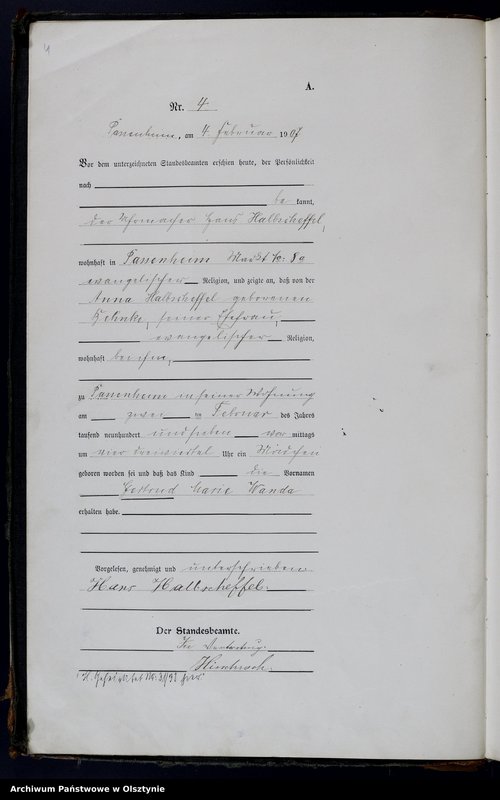 4
A.
Nr. 4.
Passenheim, am 4 Februar 1907
Vor dem unterzeichneten Standesbeamten erschien heute, der Persönlichkeit
nach
be kannt,
der Uhrmacher Hans Halbscheffel,
wohnhaft in Passenheim Markt No: 8a
evangelischer Religion, und zeigte an, daß von der
Anna Halbscheffel geborenen
seiner Ehefrau,
evangelischer Religion,
wohnhaft bei ihm,
zu Passenheim in seiner Wohnung
am zwei ten Februar des Jahres
tausend neunhundert und sieben vor mittags
um vier dreiviertel Uhr ein Mädchen
geboren worden sei und daß das Kind die Vornamen
Gertrud Marie Wanda
erhalten habe.
Vorgelesen, genehmigt und unterschrieben
Hans Halbscheffel.
Der Standesbeamte.
In Vertretung.
Archiwum Państwowe w Olsztynie